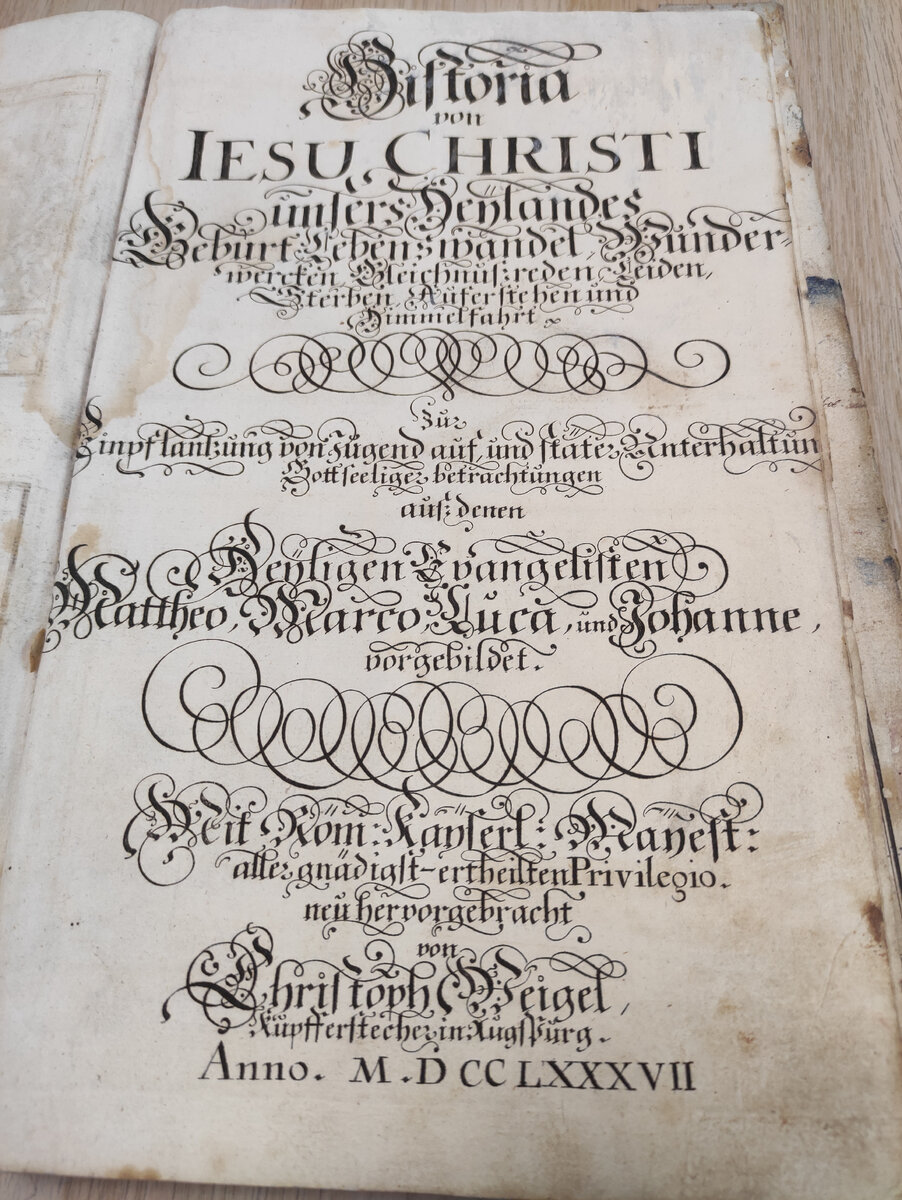 Historia
von
IESU CHRISTI
unsers Heÿlandes
Geburt, Lebenswandel, Wunder-
wercken, Gleichnußreden, Leiden,
Sterben, Auferstehen und
Himmelfahrt.
Zur
Einpflantzung von Jugend auf, und stäter Unterhaltun
Gottseeliger betrachtungen
auß denen
Heÿligen Evangelisten
Mattheo, Marco, Luca, und Johanne,
vorgebildet.
Mit Röm: Kaÿserl: Maÿest:
allergnädigst-ertheilten Privilegio.
neu hervorgebracht
von
Christoph Weigel,
Kupfferstecher in Augspurg.
Anno. M.DCCLXXXVII